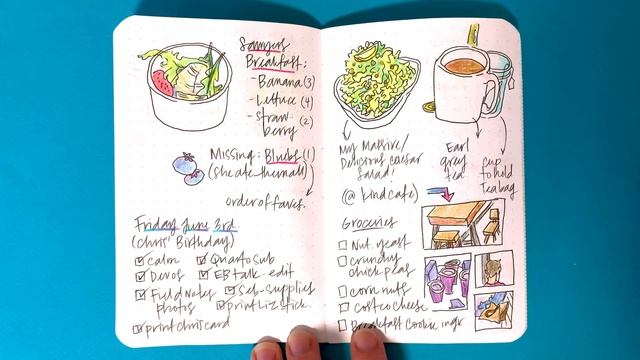 Sawyers
Breakfast:
- Banana (3)
- Lettuce (4)
- Straw- (2)
berry
Missing: Bluebs (1)
(she ate them all)
order of faves.
Friday June 3rd
(Chris' Birthday)
calm
Quarto Sub
Devos
EB talk edit
Field Notes
photos
Seb-supplies
print Liz stick.
print chris card
My Massive/
Delicious caesar
Salad!
(@ kindcafe)
Earl
grey
tea
cup
to hold
Teabag
Groceries
Nut. yeast
crunchy
chick peas
corn nuts
costco cheese
Breakfast Cookie ingr.